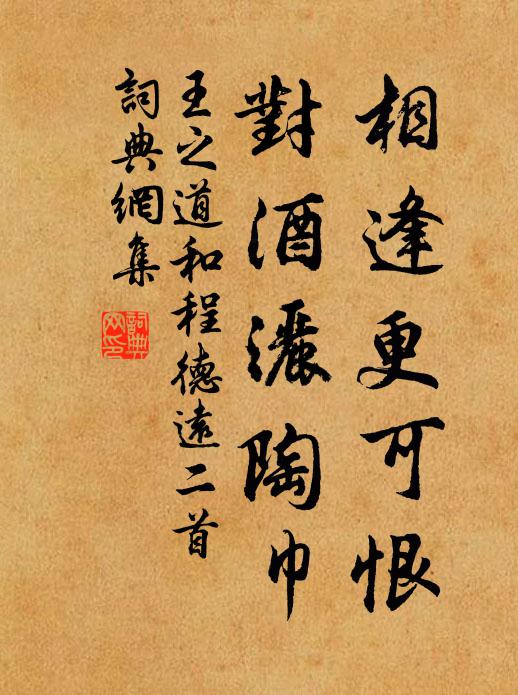 相逢更可恨
對酒灑陶巾
王之道和程德遠二首
詞典網集
詞典網印